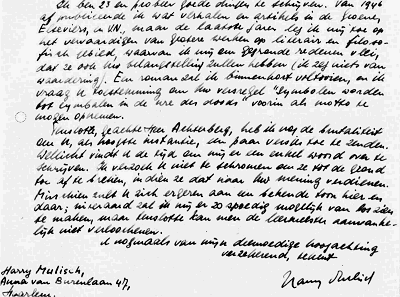 Ik ben 23 en probeer goede dingen te schrijven. Van 1946
af publiceerde ik wat verhalen en artikels in de Groene,
Elseviers, en V.N., maar de laatste jaren leg ik mij toe op
het vervaardigen van grotere werken op literair en filoso-
fisch gebied, waarvan ik mij om gegronde redenen vlei,
dat ze ook Uw belangstelling zullen hebben (ik zeg niets van
waardering). Een roman zal ik binnenkort voltooien, en ik
vraag U toestemming om Uw versregel "Symbolen worden
tot cymbalen in de ure des doods" voorin als motto te
mogen opnemen.
Tenslotte, geachte Heer Achterberg, heb ik nog de brutaliteit
om U, als hoogste instantie, een paar verzen toe te zenden.
Wellicht vindt U de tijd om mij er een enkel woord over te
schrijven. Ik verzoek U niet te schromen om ze tot de grond
toe af te breken, indien ze dat naar Uw mening verdienen.
Misschien zult U zich ergeren aan een bekende toon hier en
daar; inderdaad zal ik mij zo spoedig mogelijk van hen zien
te maken, maar tenslotte kan men de leermeester aanvanke-
lijk niet verloochenen.
U nogmaals van mijn deemoedige hoogachting
verzekerend, teken
Harry Mulisch,
Anna van Burenlaan 47,
Haarlem.
Harry Mulisch